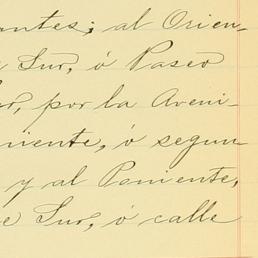 antes; al Orien-
e Sur, ó Paseo
or, por la Aveni-
niente, ó segun-
y al Poniente,
e Sur, ó calle